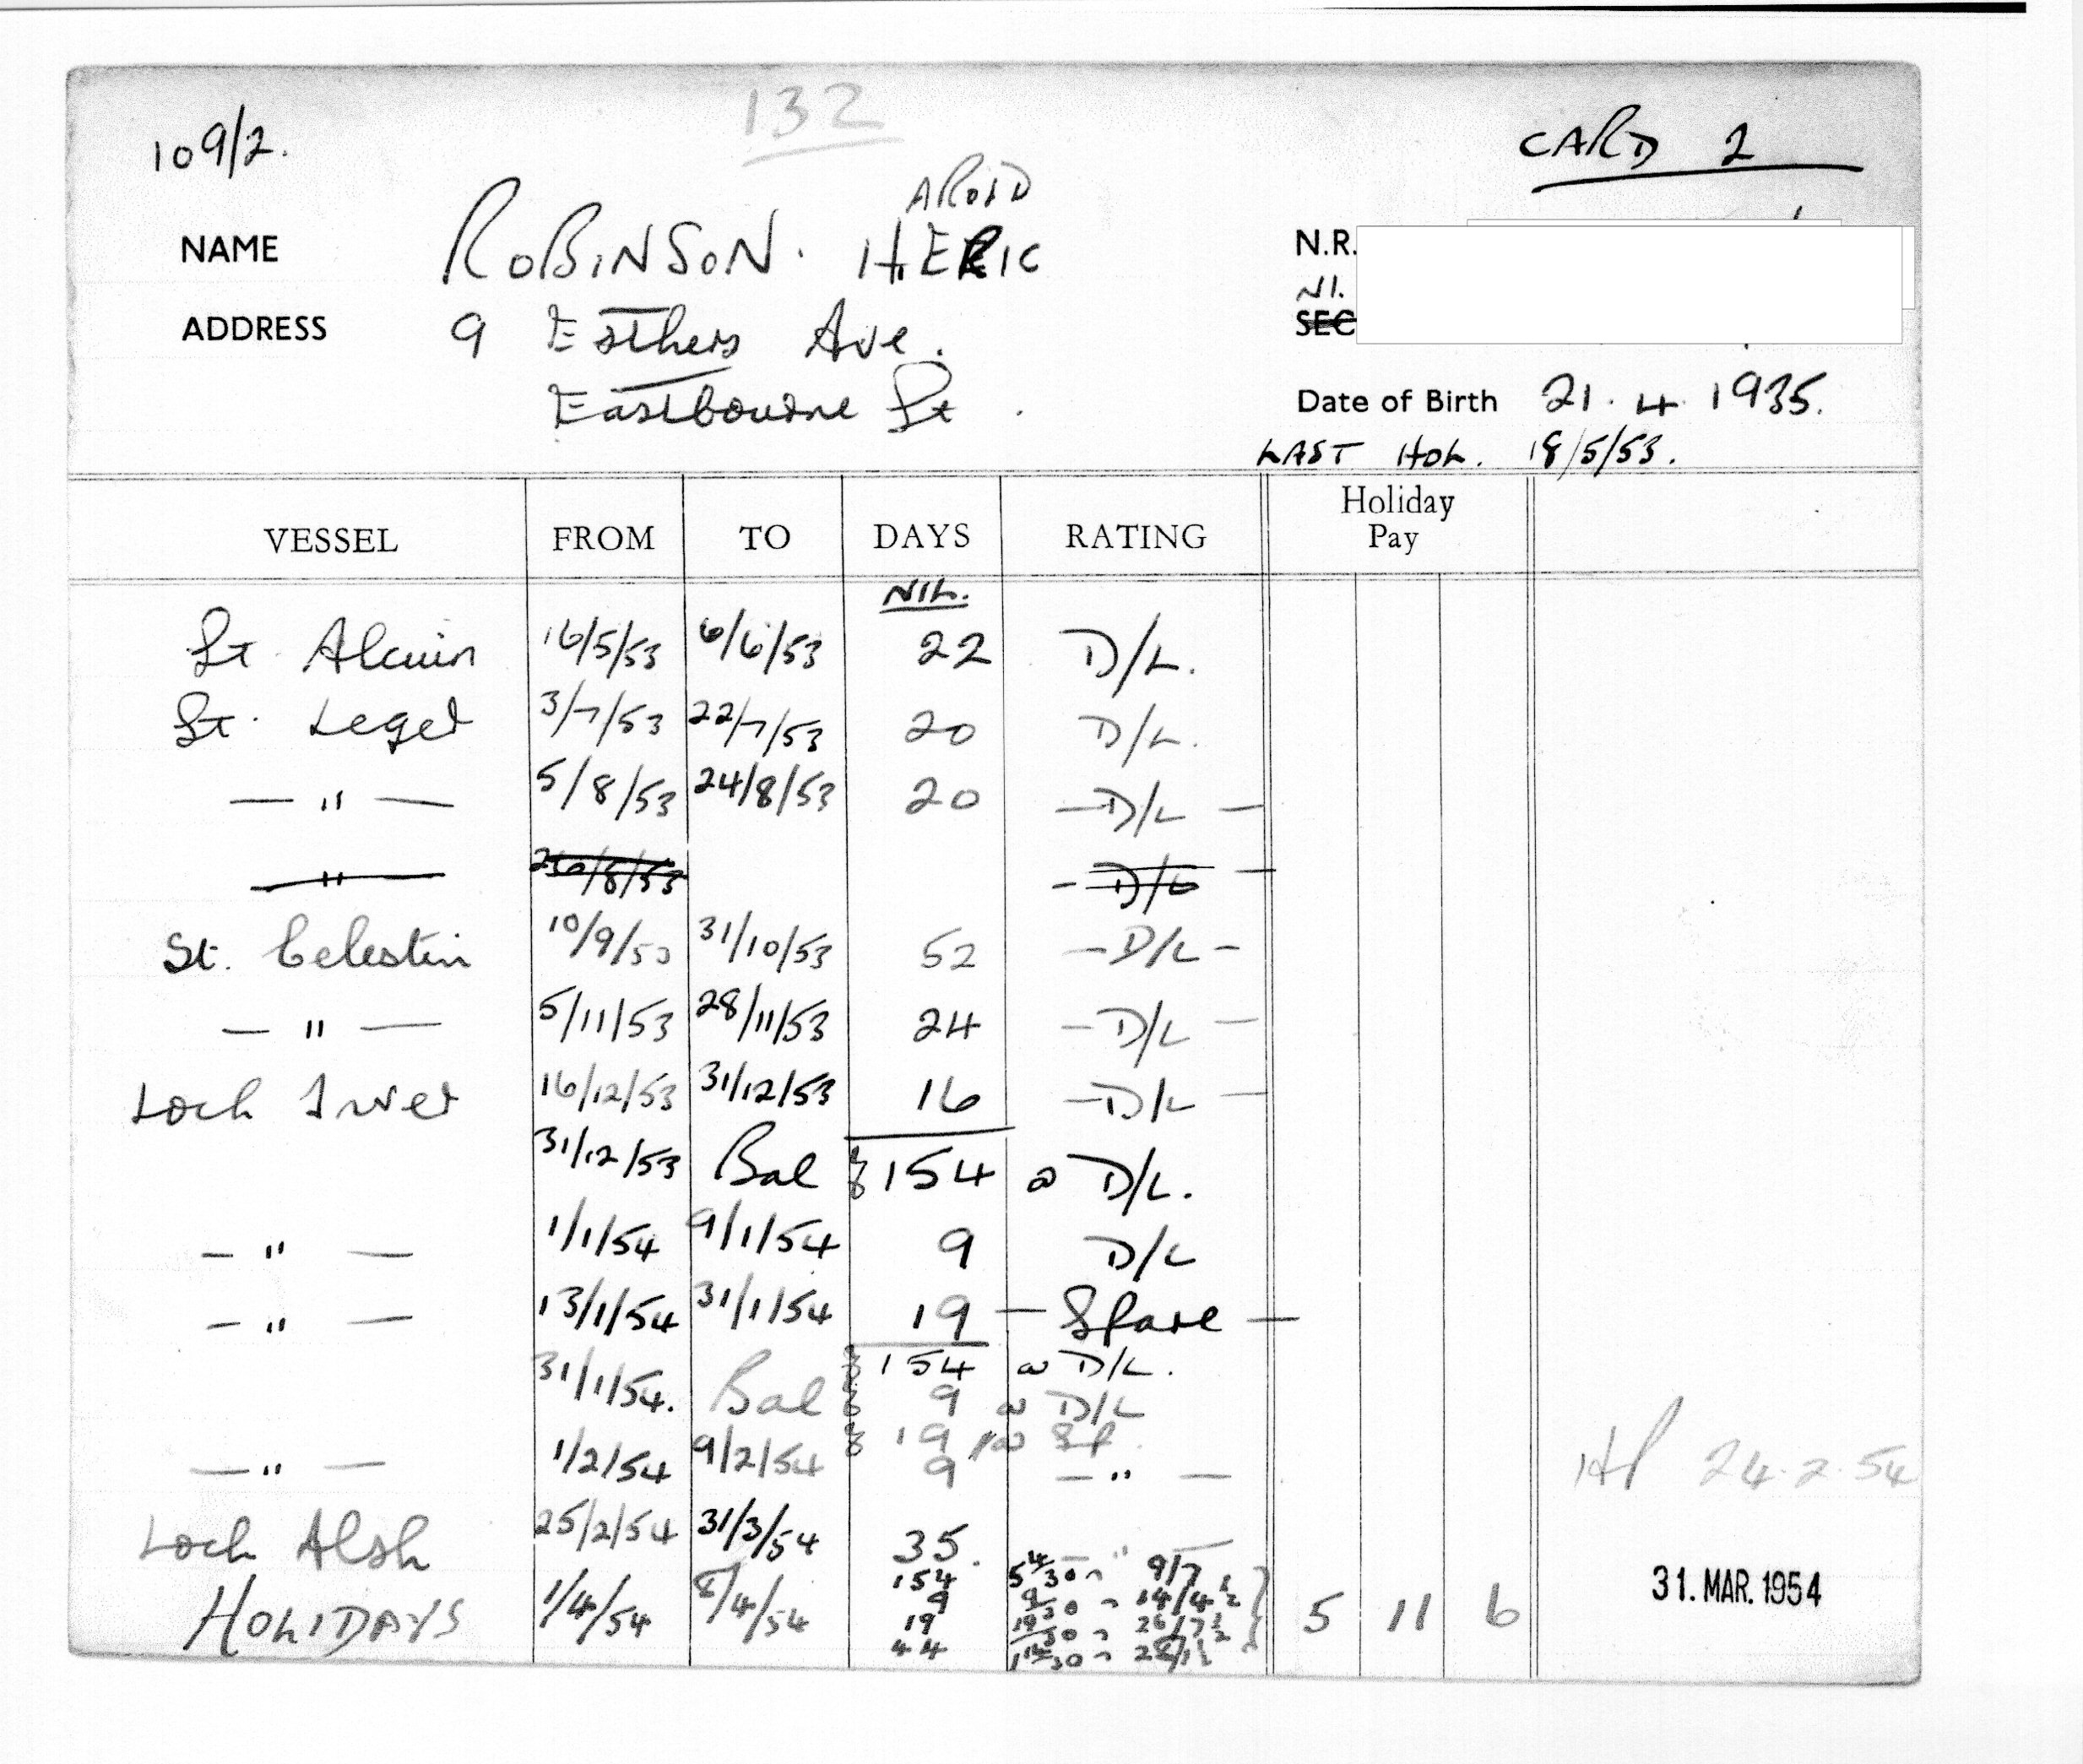 132
109/2.
CARD 2
AROLD
NAME ROBINSON. H ERIC
N.R.
NI.
SEC
ADDRESS 9 Esthers Ave.
Eastbourne St.
Date of Birth 21. 4. 1935.
LAST HOL. 18/5/53.
VESSEL FROM TO DAYS RATING Holiday Pay
NIL.
St. Alcuin 16/5/53 6/6/53 22 D/L.
St. Leger 3/7/53 22/7/53 20 D/L.
— " — 5/8/53 24/8/53 20 — D/L —
— " — /8/53 — D/L —
St. Celestin 10/9/53 31/10/53 52 — D/L —
— " — 5/11/53 28/11/53 24 — D/L —
Loch Inver 16/12/53 31/12/53 16 — D/L —
31/12/53 Bal 154 @ D/L.
— " — 1/1/54 9/1/54 9 D/L
— " — 13/1/54 31/1/54 19 — Spare —
31/1/54. Bal 154 @ D/L.
9 @ D/L
19 @ Sp.
— " — 1/2/54 9/2/54 9 — " — 24.2.54
Loch Alsh 25/2/54 31/3/54 35. — " —
HOLIDAYS 1/4/54 8/4/54 154 5 4/30 9/7 5 11 6 31. MAR. 1954
9 9/30 14/4½
19 19/30 26/7½
44 1 14/30